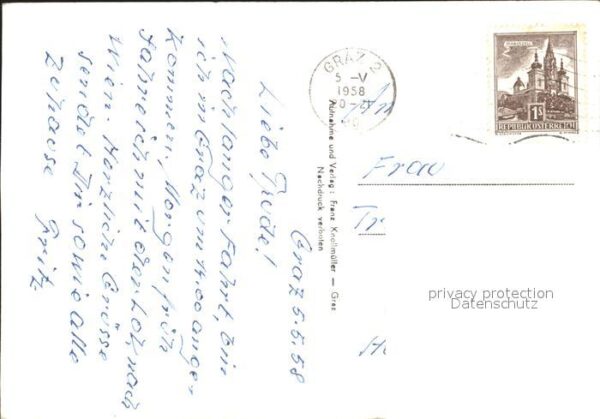 Graz 5.5.58
Liebe Trude!
Nach langer Fahrt, bin
ich in Graz um 14.00 ange-
kommen. Morgen früh
fahre ich mit dem
Wien. Herzliche Grüsse
sendet Dir sowie alle
zuhause Fritz
Aufnahme und Verlag: Franz Knollmüller — Graz
Nachdruck verboten
GRAZ 2
5 -V
1958
MARIAZELL
1S
REPUBLIK ÖSTERREICH
An
Frau
Tr
privacy protection
Datenschutz